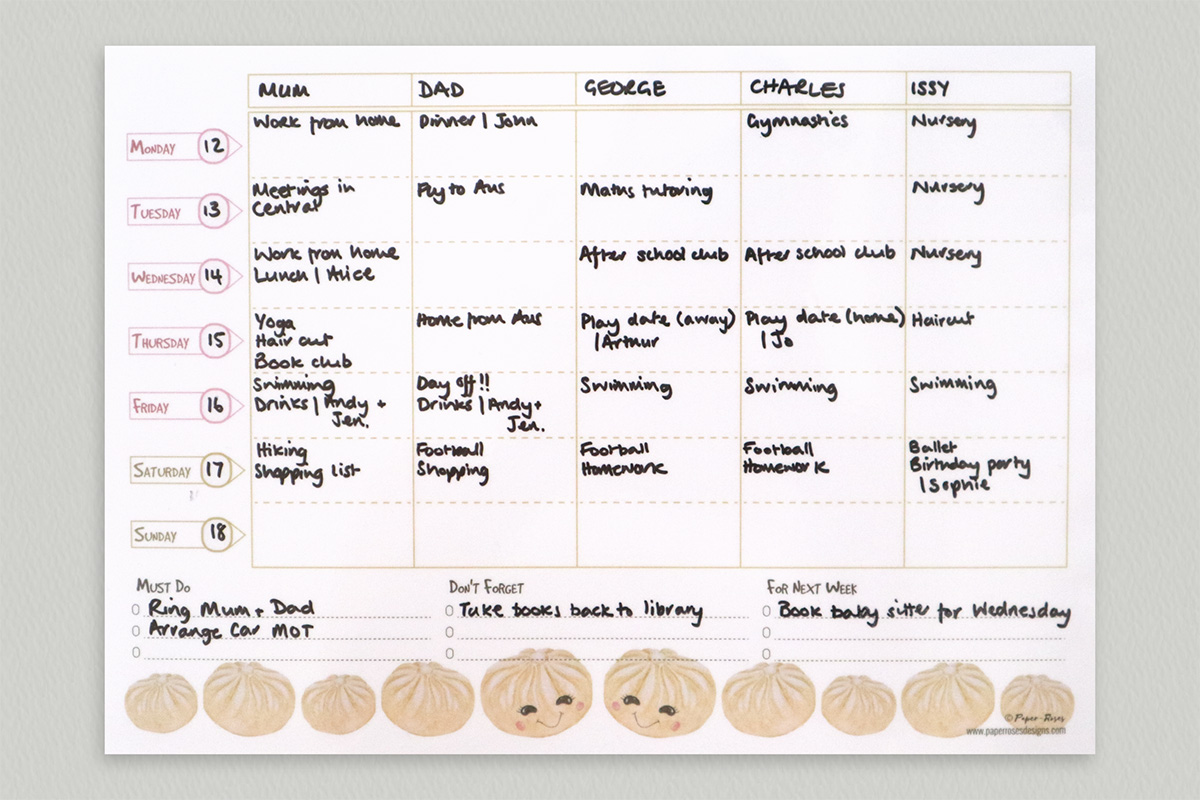 MUM DAD GEORGE CHARLES ISSY
MONDAY 12
Work from home
Dinner | John
Gymnastics
Nursery
TUESDAY 13
Meetings in
Central
Fly to Aus
Maths tutoring
Nursery
WEDNESDAY 14
Work from home
Lunch | Alice
After school club
After school club
Nursery
THURSDAY 15
Yoga
Hair cut
Book club
Home from Aus
Play date (away)
| Arthur
Play date (home)
| Jo
Haircut
FRIDAY 16
Swimming
Drinks | Andy +
Jen.
Day off!!
Drinks | Andy +
Jen.
Swimming
Swimming
Swimming
SATURDAY 17
Hiking
Shopping list
Football
Shopping
Football
Homework
Football
Homework
Ballet
Birthday party
| Sophie
SUNDAY 18
MUST DO
Ring Mum + Dad
Arrange Car MOT
DON'T FORGET
Take books back to library
FOR NEXT WEEK
Book baby sitter for Wednesday
© Paper-Roses
www.paperrosesdesigns.com